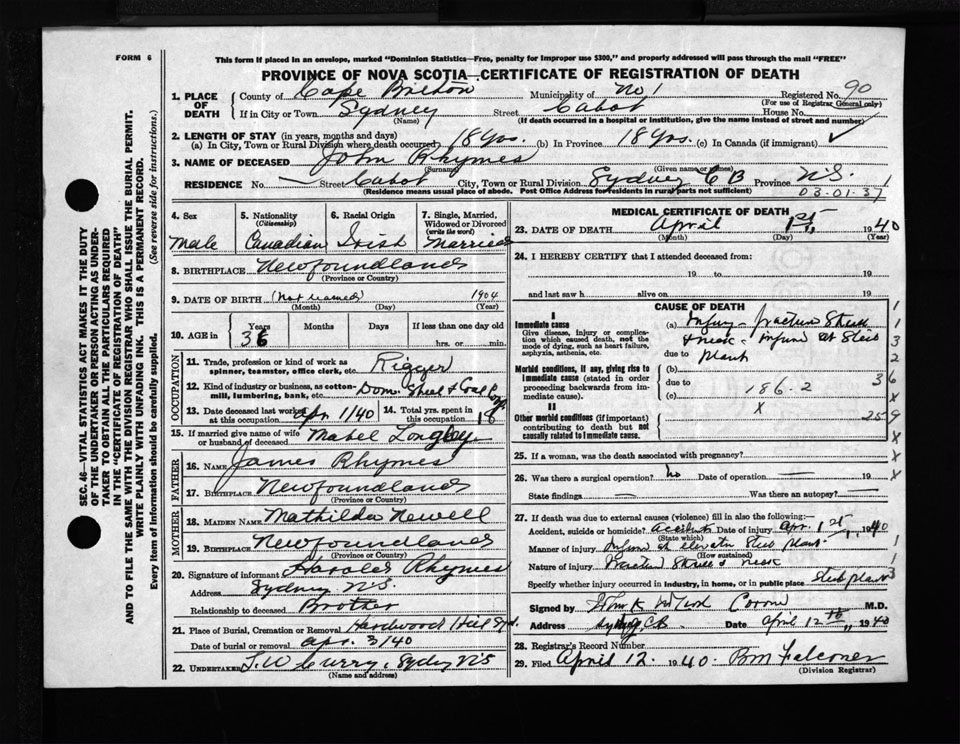 FORM 6
This form if placed in an envelope, marked "Dominion Statistics—Free, penalty for improper use $300," and properly addressed will pass through the mail "FREE"
PROVINCE OF NOVA SCOTIA—CERTIFICATE OF REGISTRATION OF DEATH
1. PLACE OF DEATH County of Cape Breton Municipality of No 1 Registered No. 90
(For use of Registrar General only)
If in City or Town Sydney Street Cabot House No.
(Name) (If death occurred in a hospital or institution, give the name instead of street and number)
2. LENGTH OF STAY (in years, months and days)
(a) In City, Town or Rural Division where death occurred 18 yrs. (b) In Province 18 yrs. (c) In Canada (if immigrant) ✓
3. NAME OF DECEASED John Rhymes
(Surname) (Given name or names)
RESIDENCE No. — Street Cabot City, Town or Rural Division Sydney C B Province N.S.
(Residence means usual place of abode. Post Office Address for residents in rural parts not sufficient) 03.01.37
4. Sex 5. Nationality (Citizenship) 6. Racial Origin 7. Single, Married, Widowed or Divorced (write the word)
Male Canadian Irish Married
8. BIRTHPLACE Newfoundland
(Province or Country)
9. DATE OF BIRTH (not learned) 1904
(Month) (Day) (Year)
10. AGE in Years Months Days If less than one day old
36 hrs. or min.
OCCUPATION
11. Trade, profession or kind of work as spinner, teamster, office clerk, etc. Rigger
12. Kind of industry or business, as cotton-mill, lumbering, bank, etc. Dom. Steel & Coal Corp
13. Date deceased last worked at this occupation Apr 1/40 14. Total yrs. spent in this occupation 18
15. If married give name of wife or husband of deceased Mabel Longley
FATHER
16. NAME James Rhymes
17. BIRTHPLACE Newfoundland
(Province or Country)
MOTHER
18. MAIDEN NAME Mathilda Newell
19. BIRTHPLACE Newfoundland
(Province or Country)
20. Signature of informant Harold Rhymes
Address Sydney N.S.
Relationship to deceased Brother
21. Place of Burial, Cremation or Removal Hardwood Hill Syd.
Date of burial or removal Apr. 3/40
22. UNDERTAKER T.W. Curry, Sydney NS
(Name and address)
MEDICAL CERTIFICATE OF DEATH
23. DATE OF DEATH April 1st, 1940
(Month) (Day) (Year)
24. I HEREBY CERTIFY that I attended deceased from:
19 to 19
and last saw h alive on 19
CAUSE OF DEATH
I
Immediate cause
Give disease, injury or complication which caused death, not the mode of dying, such as heart failure, asphyxia, asthenia, etc.
(a) Injury - fracture Skull
& neck - injury at Steel
due to plant
Morbid conditions, if any, giving rise to immediate cause (stated in order proceeding backwards from immediate cause).
(b)
due to 186.2
(c) x
II
Other morbid conditions (if important) contributing to death but not causally related to immediate cause. 259
25. If a woman, was the death associated with pregnancy?
26. Was there a surgical operation? No Date of operation — 19
State findings — Was there an autopsy? —
27. If death was due to external causes (violence) fill in also the following:—
Accident, suicide or homicide? Accident Date of injury Apr. 1st, 1940
(State which)
Manner of injury at elevator Steel plant
(How sustained)
Nature of injury Fracture Skull & neck
Specify whether injury occurred in industry, in home, or in public place Steel plant
Signed by Coroner M.D.
Address Sydney, CB Date April 12th, 1940
28. Registrar's Record Number
29. Filed April 12. 1940. BM Falconer
(Division Registrar)
SEC. 46—VITAL STATISTICS ACT MAKES IT THE DUTY
OF THE UNDERTAKER OR PERSON ACTING AS UNDERTAKER TO OBTAIN ALL THE PARTICULARS REQUIRED
IN THE "CERTIFICATE OF REGISTRATION OF DEATH"
AND TO FILE THE SAME WITH THE DIVISION REGISTRAR WHO SHALL ISSUE THE BURIAL PERMIT.
WRITE PLAINLY WITH UNFADING INK. THIS IS A PERMANENT RECORD.
Every item of information should be carefully supplied. (See reverse side for instructions.)